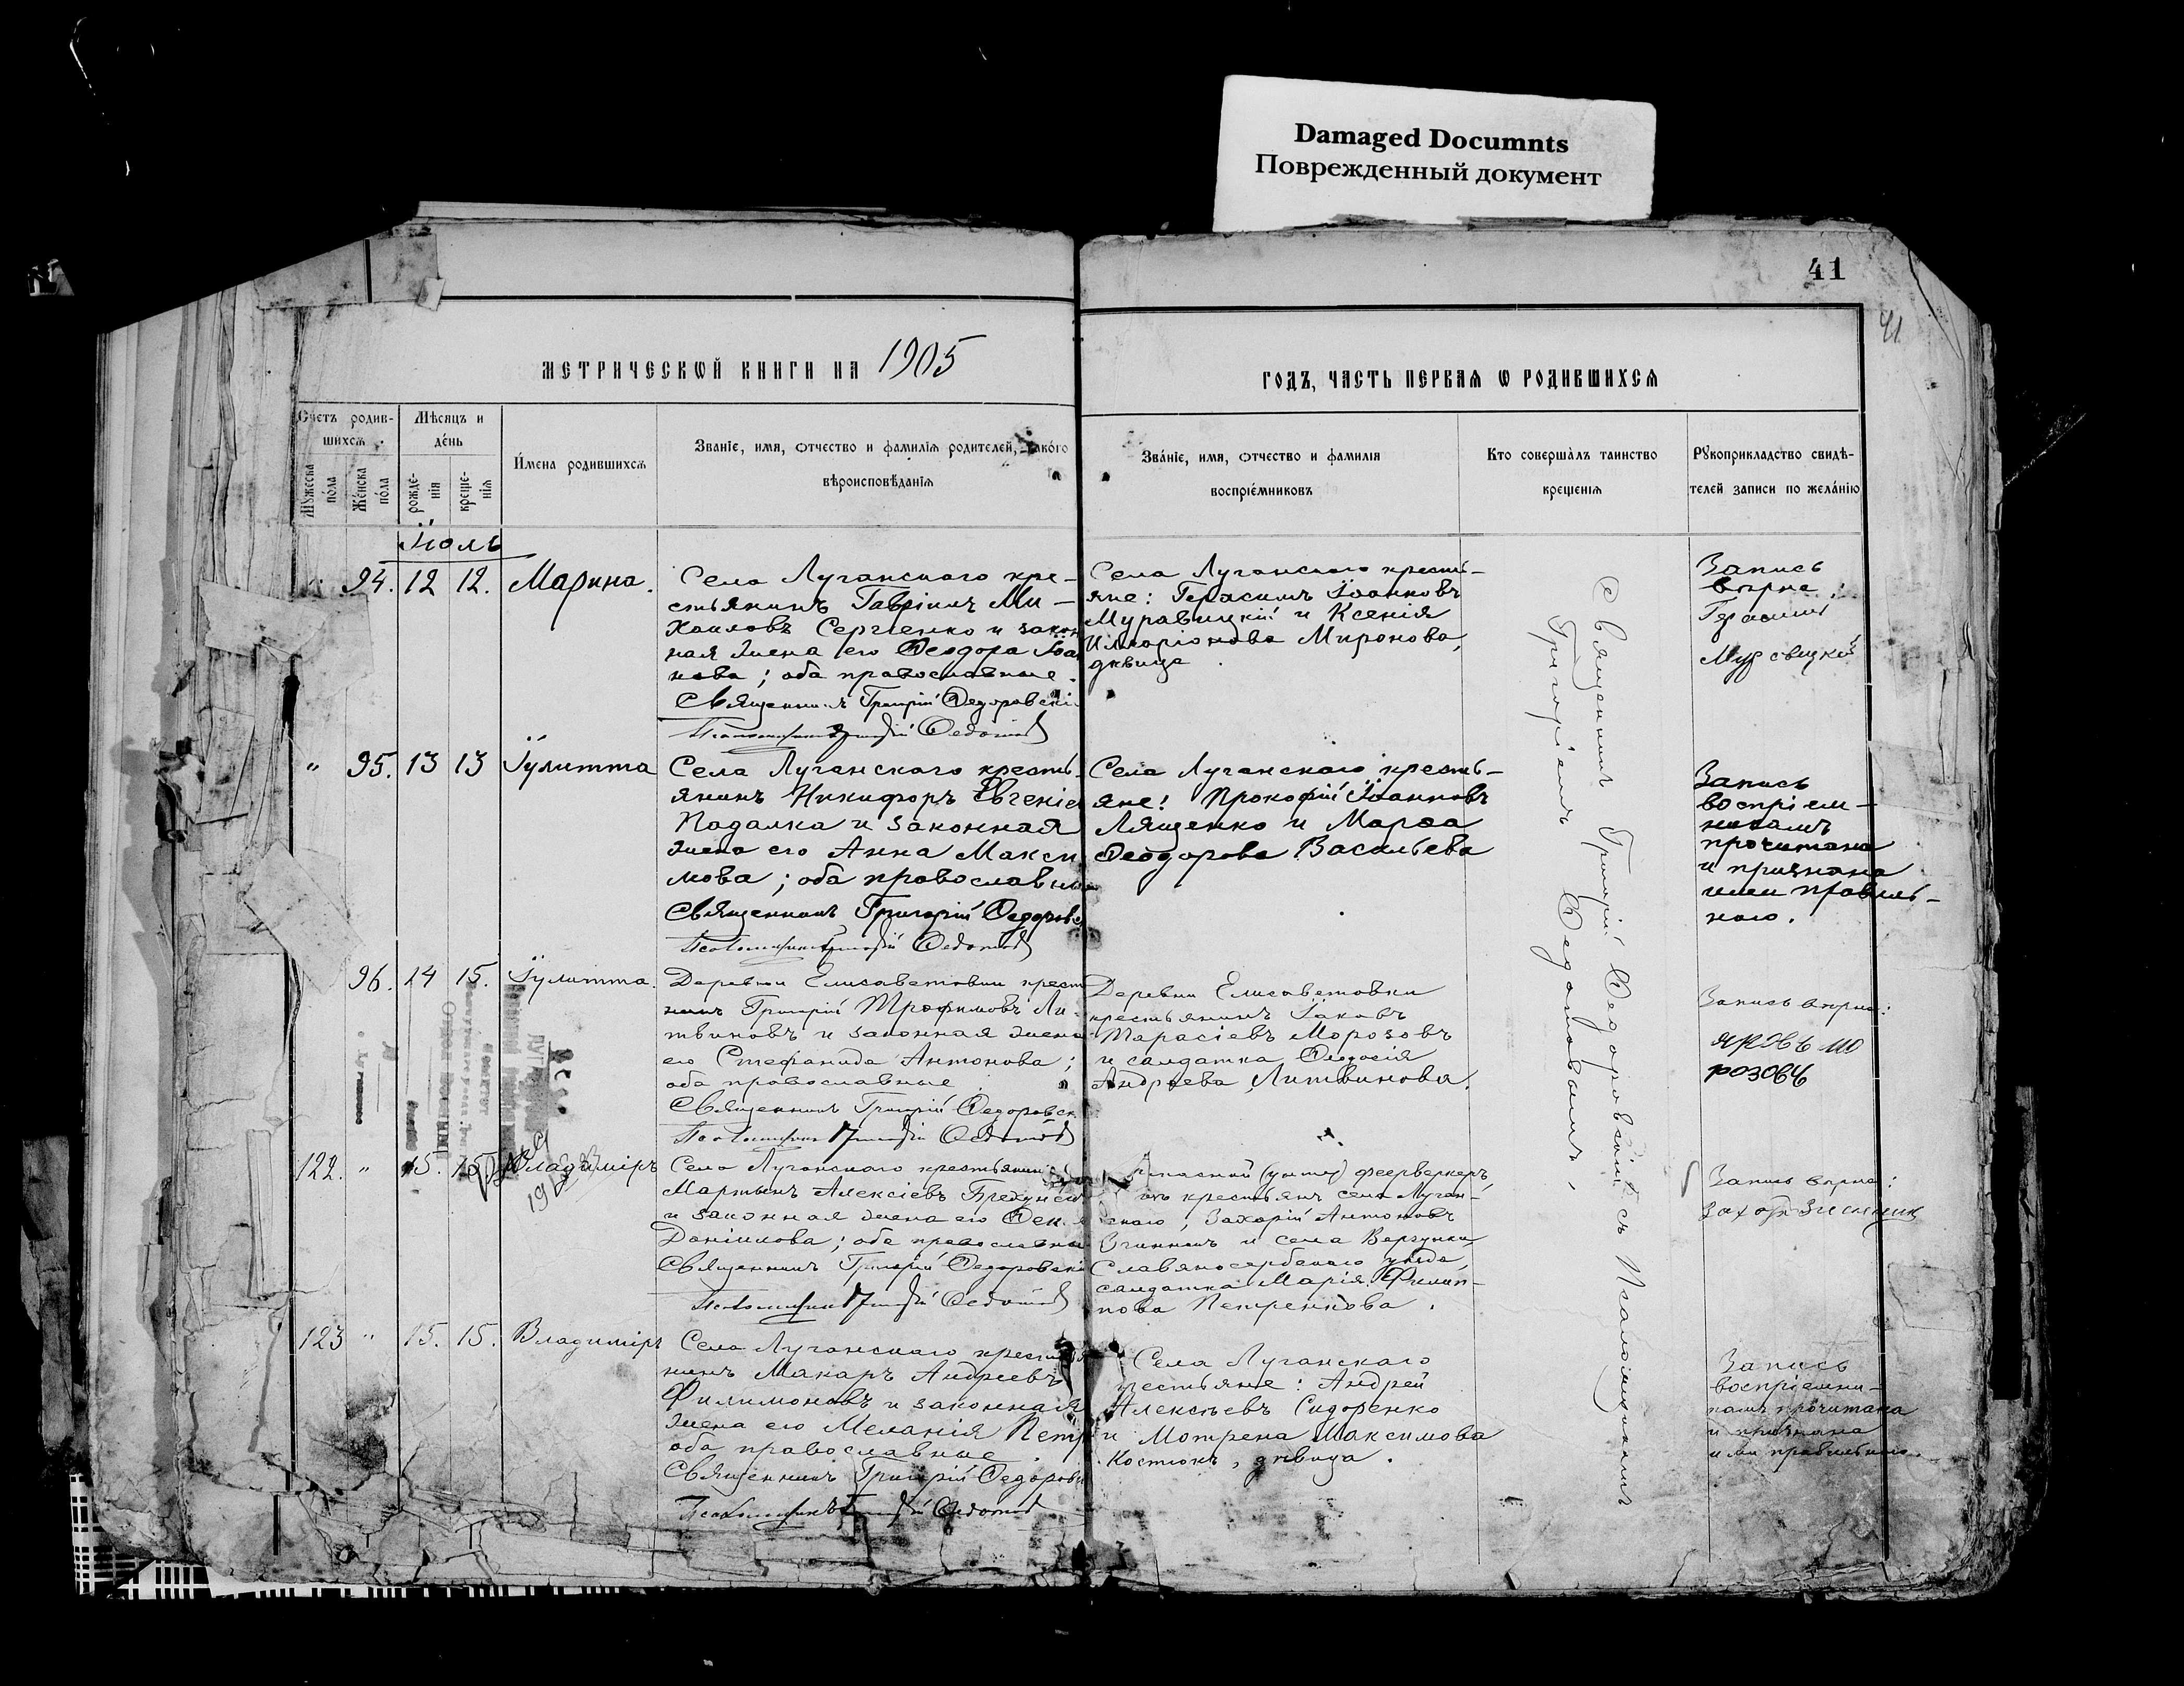 Damaged Documnts
Поврежденный документ
41
41
МЕТРИЧЕСКѠЙ КНИГИ НА 1905
ГОДЪ, ЧАСТЬ ПЕРВАѦ Ѡ РОДИВШИХСѦ
Счетъ родив-
шихсѧ
Мꙋжеска
по́ла
Же́нска
по́ла
Мѣсѧцъ и
де́нь
рожде-
нїѧ
креще-
нїѧ
И́мена родившихсѧ
Званїе, имѧ, отчество и фамилїѧ родителей, како́го
вѣроисповѣ́данїѧ
Зва́нїе, имѧ, отчество и фамилїѧ
воспрїе́мниковъ
Кто соверша̀лъ таинство
крещенїѧ
Рꙋкоприкладство свидѣ-
телей записи по жела́нїю
Іюль
94. 12 12. Марина.
Села Луганскаго кре-
стьянинъ Гавріилъ Ми-
хаиловъ Сергіенко и закон
ная жена его Ѳеодора Іоан
нова; оба православные.
Священникъ Григорій Федоровскі
Псаломщикъ Григорій Федотов
Села Луганскаго кресть-
яне: Герасимъ Іоанновъ
Муравицкій и Ксенія
Иларіонова Миронова,
дѣвица.
Запись
вѣрна:
Герасим
" 95. 13 13 Іулитта
Села Луганскаго кресть-
янинъ Никифоръ Евгеніе
Падалка и законная
жена его Анна Макси
мова; оба православные
Священникъ Григорій Федоровс
Псаломщикъ Григорій Федотов
Села Луганскаго кресть-
яне: Прокофій Іоанновъ
Лященко и Марѳа
Ѳеодорова Васильева
Запись
воспріем-
никамъ
прочитана
и признана
ими правиль-
ною.
96. 14 15. Іулитта.
Деревни Елисаветовки крест
нинъ Григорій Трофимовъ Ли-
твиновъ и законная жена
его Стефанида Антонова;
оба православные.
Священникъ Григорій Федоровск
Псаломщикъ Григорій Федотов
Деревни Елисаветовки
крестьянинъ Іаковъ
Тарасіевъ Морозовъ
и салдатка Ѳеодосія
Андреева Литвинова.
Запись вѣрна:
яковъ мо
розовъ
122. " 15. 15. Владиміръ
Села Луганскаго крестьянинъ
Мартынъ Алексіевъ
и законная жена его
Даніилова; оба православные
Священникъ Григорій Федоровскі
Псаломщикъ Григорій Федотов
феерверкеръ,
изъ крестьянъ села Луган-
скаго, Захарій Антоновъ
и села Вергунки,
Славяносербскаго уѣзда,
салдатка Марія Филип-
пова Петренкова.
Запись вѣрна:
123 " 15. 15. Владиміръ
Села Луганскаго крестья
нинъ Макаръ Андреевъ
Филимоновъ и законная
жена его Меланія Петр
оба православные.
Священникъ Григорій Федоровс
Псаломщикъ Григорій Федотов
Села Луганскаго
рестьяне: Андрей
Алексѣевъ Сидоренко
и Мотрена Максимова
Костюкъ, дѣвица.
Запись
воспріемни-
камъ прочитана
и признана
ими правильною.
Священникъ Григорій Федоровскій съ Псаломщикомъ
Григоріемъ Федотовымъ.